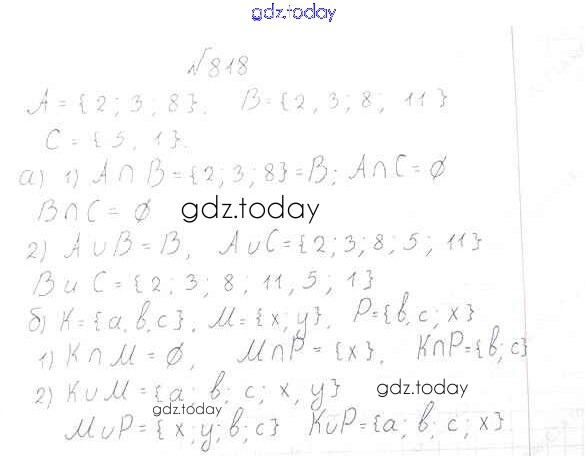 gdz.today
№818
A = {2; 3; 8}. B = {2, 3; 8; 11}
C = {5, 1}.
а) 1) A ∩ B = {2; 3; 8} = B; A ∩ C = ∅
B ∩ C = ∅ gdz.today
2) A ∪ B = B, A ∪ C = {2; 3; 8; 5; 11}
B и C = {2; 3; 8; 11, 5; 1}
б) K = {a, b, c}, M = {x; y}, P = {b, c; x}
1) K ∩ M = ∅, M ∩ P = {x}, K ∩ P = {b; c}
2) K ∪ M = {a; b; c; x, y} gdz.today
gdz.today
M ∪ P = {x; y; b; c} K ∪ P = {a; b; c; x}.